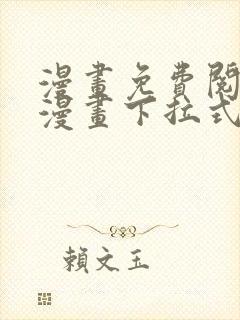 漫畫免費閱
漫畫下拉式
賴文玉